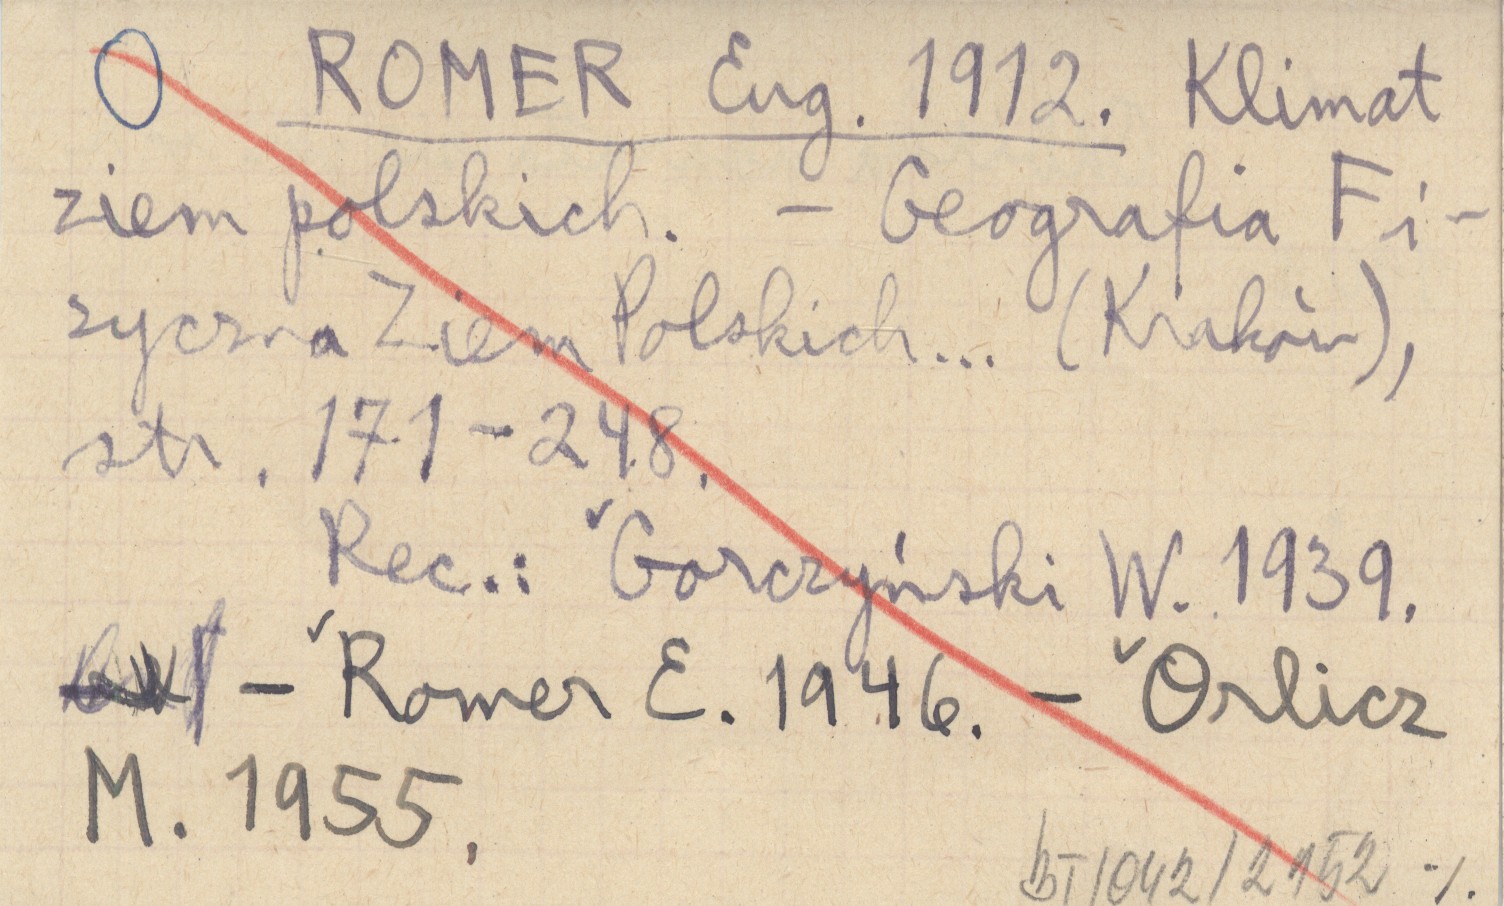 O ROMER Eug. 1912. Klimat
ziem polskich. - Geografia Fi-
zyczna Ziem Polskich... (Kraków),
str. 171-248.
Rec.: ˇGorczyński W. 1939.
- ˇRomer E. 1946. - ˇOrlicz
M. 1955.
/042/2152 ./.